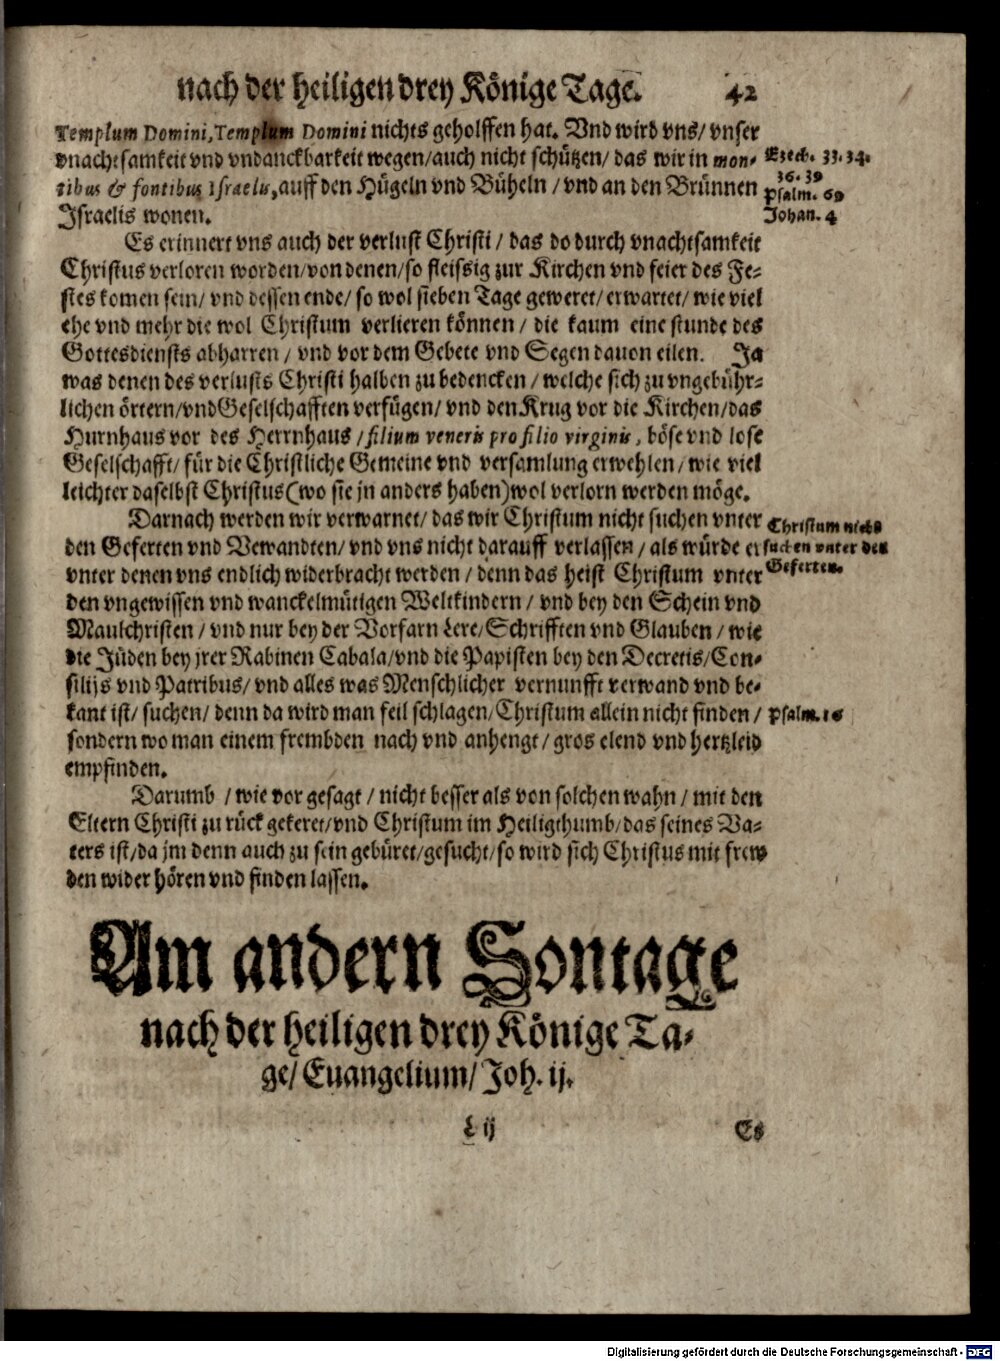 nach der heiligen drey Könige Tage. 42
Templum Domini, Templum Domini nichts geholffen hat. Vnd wird vns/ vnser
vnachtsamkeit vnd vndanckbarkeit wegen/auch nicht schützen/ das wir in mon-
tibus & fontibus Israelis, auff den Hügeln vnd Büheln / vnd an den Brünnen
Israelis wonen.
Ezech. 33. 34.
36. 39
Psalm. 69
Johan. 4
Es erinnert vns auch der verlust Christi / das do durch vnachtsamkeit
Christus verloren worden/von denen/so fleissig zur Kirchen vnd feier des Fe-
stes komen sein/ vnd dessen ende/ so wol sieben Tage geweret/ erwartet/ wie viel
ehe vnd mehr die wol Christum verlieren können / die kaum eine stunde des
Gottesdiensts abharren / vnd vor dem Gebete vnd Segen dauon eilen. Ja
was denen des verlusts Christi halben zu bedencken / welche sich zu vngebühr-
lichen örtern/vnd Geselschafften verfügen/ vnd den Krug vor die Kirchen/das
Hurnhaus vor des Herrnhaus / filium veneris pro filio virginis, böse vnd lose
Geselschafft/ für die Christliche Gemeine vnd versamlung erwehlen/ wie viel
leichter daselbst Christus (wo sie jn anders haben) wol verlorn werden möge.
Darnach werden wir verwarnet/ das wir Christum nicht suchen vnter
den Geferten vnd Vewandten/ vnd vns nicht darauff verlassen / als würde er
vnter denen vns endlich widerbracht werden / denn das heist Christum vnter
den vngewissen vnd wanckelmütigen Weltkindern / vnd bey den Schein vnd
Maulchristen / vnd nur bey der Vorfarn Lere/ Schrifften vnd Glauben / wie
die Jüden bey jrer Rabinen Cabala/vnd die Papisten bey den Decretis/ Con-
silijs vnd Patribus/ vnd alles was Menschlicher vernunfft verwand vnd be-
kant ist/ suchen/ denn da wird man feil schlagen/ Christum allein nicht finden /
sondern wo man einem frembden nach vnd anhengt / gros elend vnd hertzleid
empfinden.
Christum nicht
suchen vnter den
Geferten.
Psalm. 16
Darumb / wie vor gesagt / nicht besser als von solchen wahn / mit den
Eltern Christi zu rück gekeret/vnd Christum im Heiligthumb/das seines Va-
ters ist/da jm denn auch zu sein gebüret/gesucht/ so wird sich Christus mit frew
den wider hören vnd finden lassen.
Am andern Sontage
nach der heiligen drey Könige Ta-
ge/ Euangelium/ Joh. ij.
L ij Es
Digitalisierung gefördert durch die Deutsche Forschungsgemeinschaft - DFG